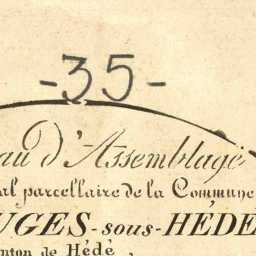 -35-
au d'Assemblage
al parcellaire de la Commune
UGES-sous-HÉDÉ
nton de Hédé,